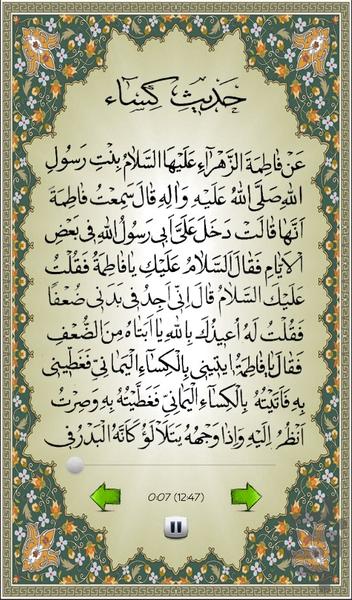 حَدیثِ کِسٰاء
عَنْ فَاطِمَةَ الزَّهْرَآءِ عَلَيْهَا السَّلَامُ بِنْتِ رَسُولِ
اللهِ صَلَّى اللهُ عَلَيْهِ وَالِهِ قَالَ سَمِعْتُ فَاطِمَةَ
اَنَّهَا قَالَتْ دَخَلَ عَلَيَّ اَبِي رَسُولُ اللهِ فِي بَعْضِ
الْاَيَّامِ فَقَالَ السَّلَامُ عَلَيْكِ يَا فَاطِمَةُ فَقُلْتُ
عَلَيْكَ السَّلَامُ قَالَ اِنّي اَجِدُ في بَدَني ضُعْفًا
فَقُلْتُ لَهُ اُعيذُكَ بِاللهِ يَا اَبَتَاهُ مِنَ الضُّعْفِ
فَقَالَ يَا فَاطِمَةُ ايتيني بِالْكِسَآءِ الْيَمَانيّ فَغَطّيني
بِهِ فَاَتَيْتُهُ بِالْكِسَآءِ الْيَمَانيّ فَغَطَّيْتُهُ بِهِ وَصِرْتُ
اَنْظُرُ اِلَيْهِ وَاِذَا وَجْهُهُ يَتَلَأْلَؤُ كَاَنَّهُ الْبَدْرُ فی
0:07 (12:47)